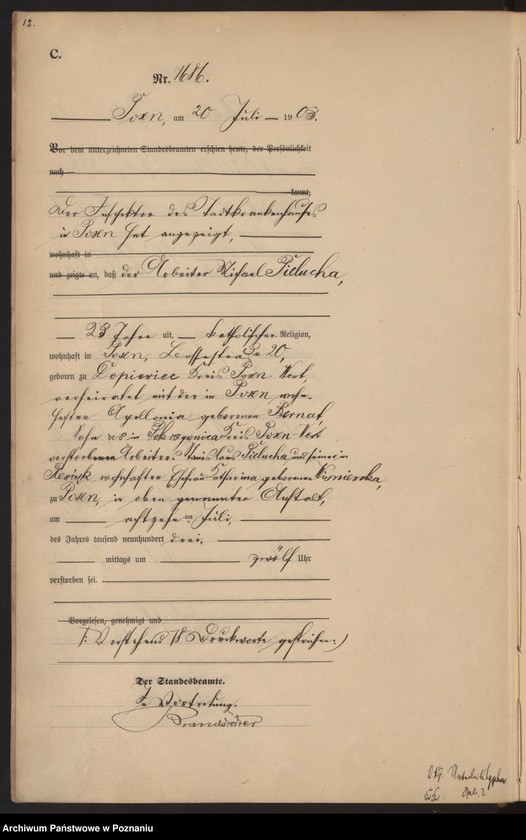 12.
C.
Nr. 1686.
Posen, am 20 Juli 1903.
Vor dem unterzeichneten Standesbeamten erschien heute, der Persönlichkeit
nach
kannt,
Der Inspektor des Stadtkrankenhauses
in Posen hat angezeigt,
wohnhaft in
und zeigte an, daß der Arbeiter Michael Pielucha,
23 Jahre alt, katholischer Religion,
wohnhaft in Posen, 20,
geboren zu Dopiewiec Kreis Posen West,
verheiratet mit der in Posen wohn-
haften Apollonia geborenen Bernat,
Sohn des in Kreis Posen West
verstorbenen Arbeiters Stanislaus Pielucha und seiner in
wohnhaften Ehefrau Katharina geborenen
zu Posen, in oben genannter Anstalt,
am achtzehnten Juli,
des Jahres tausend neunhundert drei,
mittags um zwölf Uhr
verstorben sei.
Vorgelesen, genehmigt und
/: Vorstehend 18 Druckworte gestrichen :/
Der Standesbeamte.
In Vertretung.
Archiwum Państwowe w Poznaniu